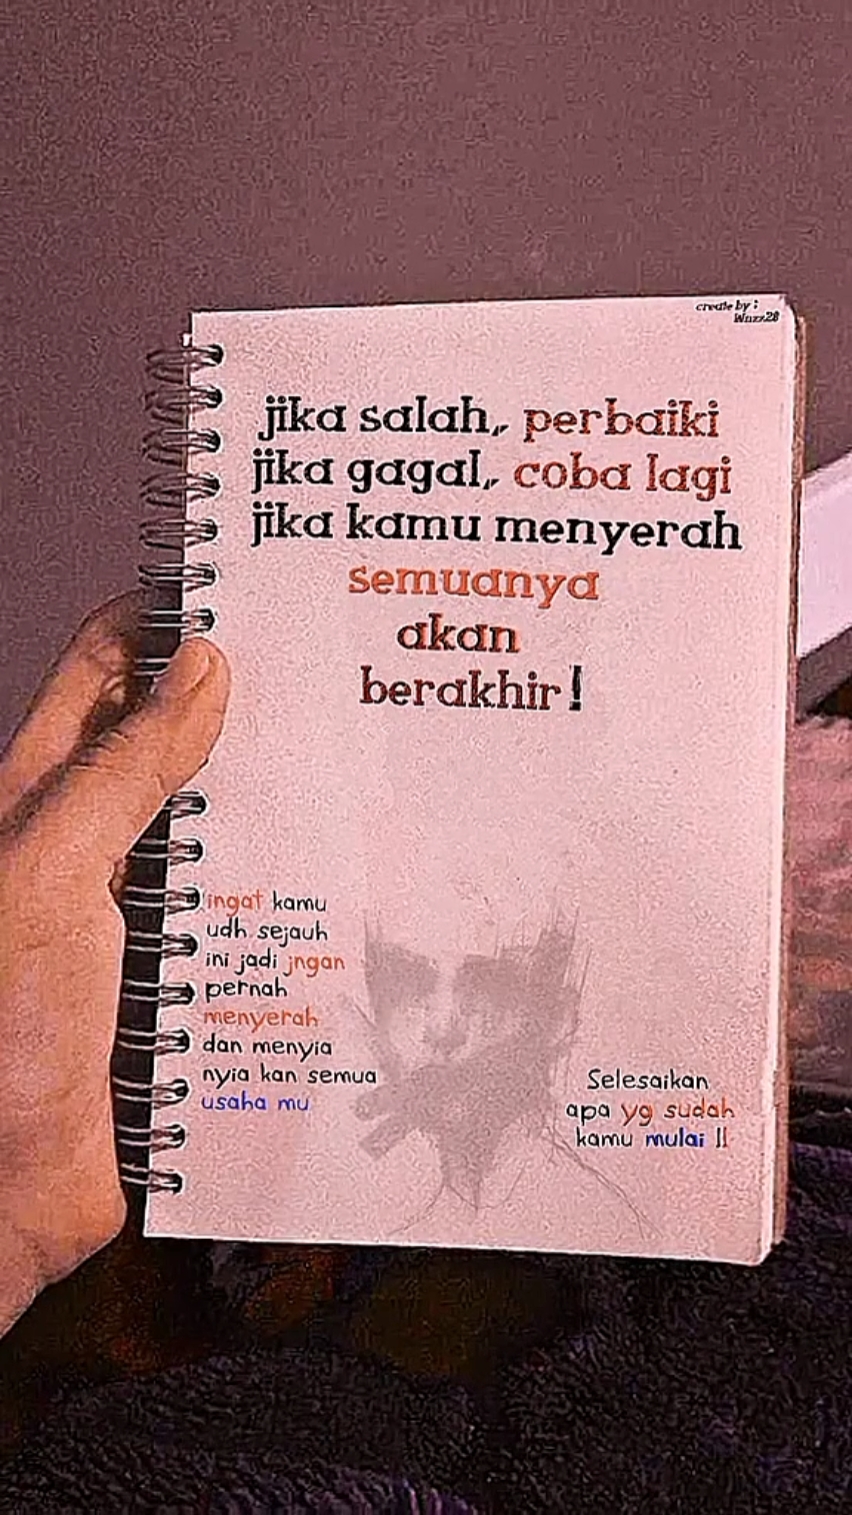 create by :
Wnzz28
jika salah, perbaiki
jika gagal, coba lagi
jika kamu menyerah
semuanya
akan
berakhir!
ingat kamu
udh sejauh
ini jadi jngan
pernah
menyerah
dan menyia
nyia kan semua
usaha mu
Selesaikan
apa yg sudah
kamu mulai !!